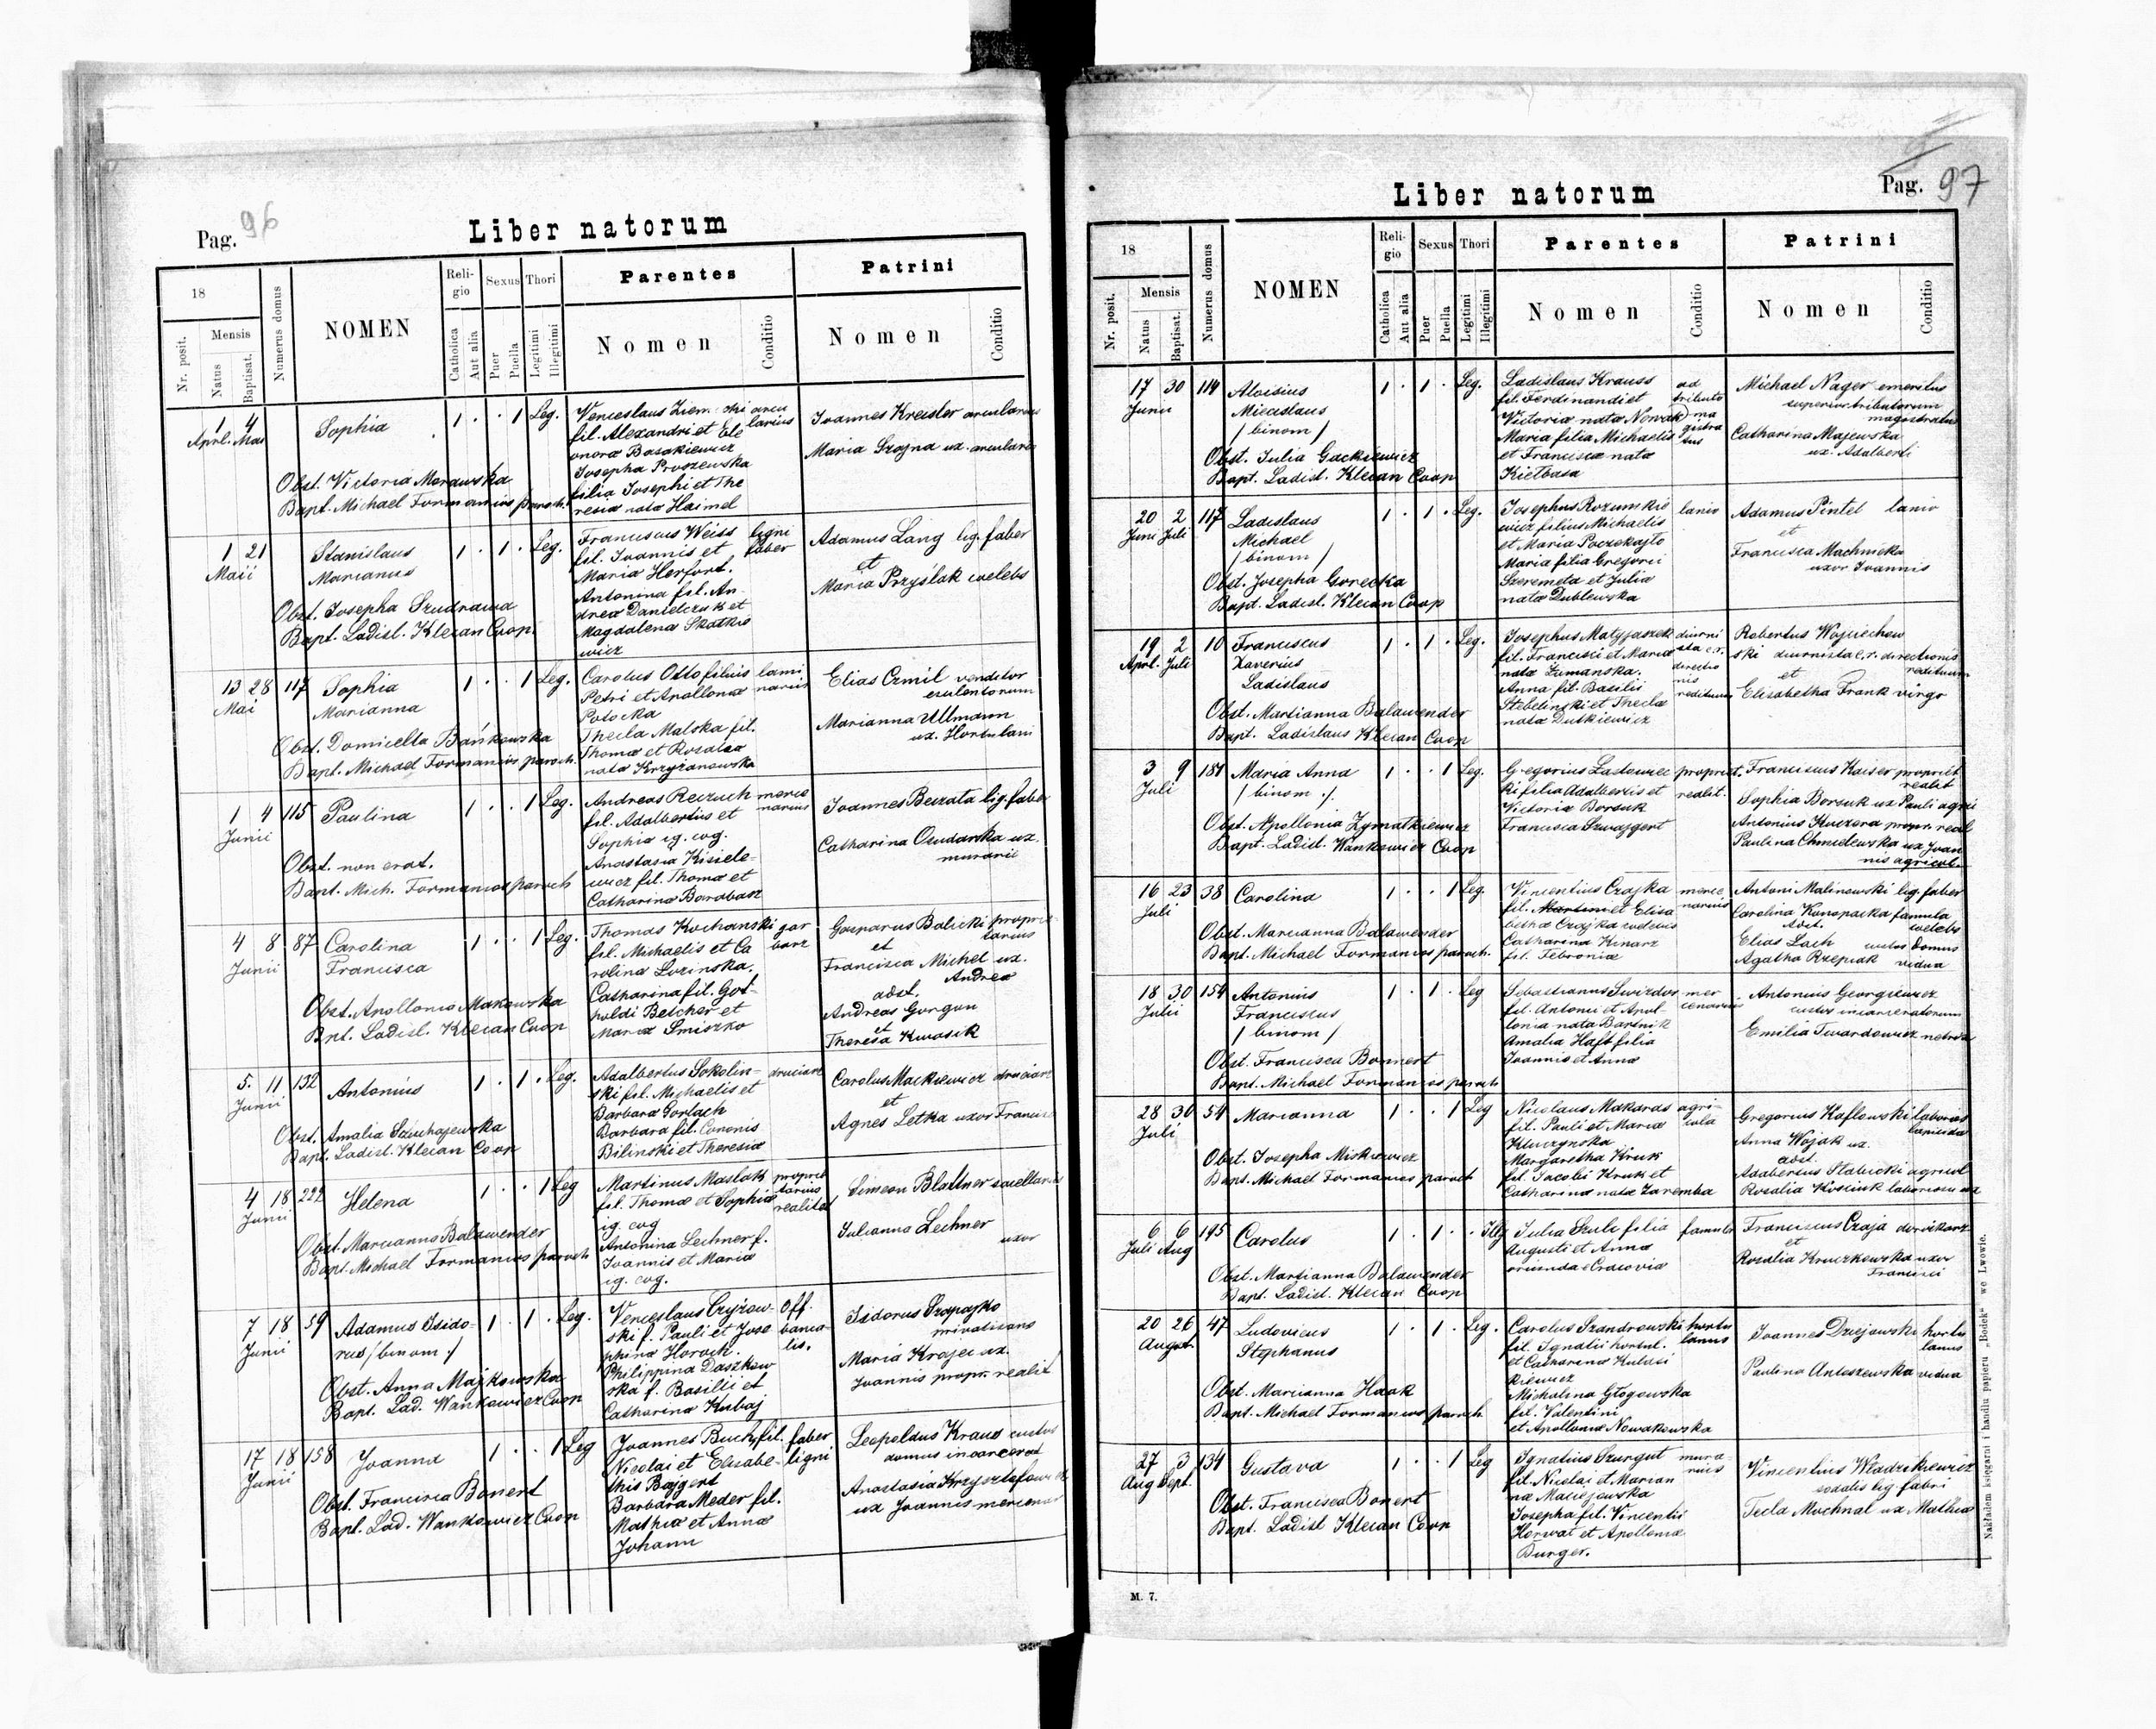 Pag. 96
Liber natorum
18
Nr. posit.
Mensis
Natus
Baptisat.
Numerus domus
NOMEN
Religio
Catholica
Aut alia
Sexus
Puer
Puella
Thori
Legitimi
Illegitimi
Parentes
Nomen
Conditio
Patrini
Nomen
Conditio
1 4
April. Mai
Sophia
1 . . 1 Leg.
Obst. Victoria Morawska
Bapt. Michael Formanios paroch.
fil. Alexandri et Ele
onora Basakiewicz
Josepha Proszewska
filia Josephi et The
resia nata Haimel
arcu
larius
Joannes Kreisler arcularius
Maria Szajna ux. arcularii
1 21
Maii
Stanislaus
Marianus
1 . 1 . Leg.
Obst. Josepha Szudrawa
Bapt. Ladisl. Klecan Coop.
Franciscus Weiss
fil. Joannis et
Maria Herfort.
Antonina fil. An
drea Danielczuk et
Magdalena Skatko
wicz
ligni
faber
Adamus Lang lig. faber
et
Maria Przyślak coelebs
13 28 117
Mai
Sophia
Marianna
1 . . 1 Leg.
Obst. Domicella Bańkowska
Bapt. Michael Formanios paroch.
Carolus Otto filius
Petri et Apollonia
Potocka
Thecla Malska fil.
Thoma et Rosalia
nata Krzyżanowska
Elias Czmil venditor
esculentorum
Marianna Ullmann
ux. Hortulani
1 4 115
Junii
Paulina
1 . . 1 Leg.
Obst. non erat.
Bapt. Mich. Formanios paroch
Andreas Reczuch
fil. Adalbertus et
Sophia ig. cog.
Anastasia Kisiele-
wicz fil. Thoma et
Catharina Barabasz
merce
narius
Joannes Bezata lig. faber
Catharina Osudarska ux.
murarii
4 8 87
Junii
Carolina
Francisca
1 . . 1 Leg.
Obst. Apollonia Makowska
Bpt. Ladisl. Klecan Coop
Thomas Kochanski
fil. Michaelis et Ca
rolina Lozinska.
Catharina fil. Got-
holdi Betcher et
Maria Smiszko
gar
barz
Gasparus Balicki proprie-
tarius
et
Francisca Michel ux.
Andrea
adst.
Andreas Gorgon
et
Theresa Kwasik
5. 11 132
Junii
Antonius
1 . 1 . Leg.
Obst. Amalia Szuchajewska
Bapt. Ladisl. Klecan Coop
Adalbertus Sokolin-
ski fil. Michaelis et
Barbara Gorlach
Barbara fil. Cononis
Bilinski et Theresia
druciarz
Carolus Mackiewicz druciarz
et
Agnes Letka uxor Francisci
4 18 222
Junii
Helena
1 . . 1 Leg
Obst. Marcianna Balawender
Bapt. Michael Formanios paroch
Martinus Maslak
fil. Thoma et Sophia
ig. cog
Antonina Lechner f.
Joannis et Maria
ig. cog.
proprie
tarius
realitat
Simeon Blattner sacellarius
Julianna Lechner
uxor
7 18 39
Junii
Adamus Isido-
rus / binom /
1 . 1 . Leg.
Obst. Anna Majkowska
Bapt. Lad. Wańkowicz Coop
Venceslaus Czyżow-
ski f. Pauli et Jose
phina Horoch.
Philippina Daszkow
ska f. Basilii et
Catharina Kubaj
Off.
banca-
lis.
Isidorus Szapajko
privatisans
Maria Krajec ux.
Joannis propr. realit
17 18 158
Junii
Joanna
1 . . 1 Leg
Obst. Francisca Bonert
Bapt. Lad. Wankowicz Coop
Joannes Buch fil.
Nicolai et Elisabe-
this Bajgert
Barbara Meder fil.
Mathia et Anna
Johann
faber
ligni
Leopoldus Kraus custos
domus incarcerat
Anastasia Krzysztofowicz
ux Joannis mercenar
Pag. 97
Liber natorum
18
Nr. posit.
Mensis
Natus
Baptisat.
Numerus domus
NOMEN
Religio
Catholica
Aut alia
Sexus
Puer
Puella
Thori
Legitimi
Illegitimi
Parentes
Nomen
Conditio
Patrini
Nomen
Conditio
17 30 114
Junii
Aloisius
Miecislaus
/ binom /
1 . 1 . Leg.
Obst. Julia Gackiewicz
Bapt. Ladisl. Klecan Coop
Ladislaus Krauss
fil. Ferdinandi et
Victoria nata Nowak
Maria filia Michaelis
et Francisca nata
Kiełbasa
ad
tributa
ma
gistra
tus
Michael Nager emeritus
supervis tributorum
magistratus
Catharina Majewska
ux. Adalberti
20 2 117
Juni Juli
Ladislaus
Michael
/ binom /
1 . 1 . Leg.
Obst. Josepha Gorecka
Bapt. Ladisl. Klecan Coop
Josephus Rozumkie
wicz filius Michaelis
et Maria Poczekajlo
Maria filia Gregorii
Szeremeta et Julia
nata Dublewska
lanio
Adamus Pintel lanio
et
Francisca Machnicka
uxor Joannis
19 2 10
Aprl. Juli
Franciscus
Xaverius
Ladislaus
1 . 1 . Leg.
Obst. Marcianna Balawender
Bapt. Ladislaus Klecan Coop
Josephus Matyjaszek
fil. Francisci et Maria
nata Zumanska.
Anna fil. Basilii
Stebelinski et Thecla
nata Dutkiewicz
diurni
sta c.r.
directio
nis
redituum
Robertus Wojciechow
ski diurnista c.r. directionis
redituum
et
Elisabetha Frank virgo
3 9 181
Juli
Maria Anna
/ binom /
1 . . 1 Leg.
Obst. Apollonia Zymatkiewicz
Bapt. Ladisl. Wankowicz Coop
Gregorius Lastowiec
ki filia Adalbertis et
Victoria Borsuk
Francisca Szwajgert
propriet.
realit.
Franciscus Kaiser propriet
realit
Sophia Borsuk ux Pauli agri
Antonius Kuczera propr. real
Paulina Chmielewska ux Joan
nis agricola
16 23 38
Juli
Carolina
1 . . 1 Leg.
Obst. Marcianna Balawender
Bapt. Michael Formanios paroch.
Vincentius Czajka
fil. Martini et Elisa
betha Czajka
Catharina Kinarz
fil. Febronia
merce
narius
Antoni Malinowski lig. faber
Carolina Konopacka famula
adst. coelebs
Elias Lach custos domus
Agatha Rzepiak vidua
18 30 154
Julii
Antonius
Franciscus
/ binom /
1 . 1 . Leg
Obst. Francisca Bonnert
Bapt. Michael Formanios paroch
Sebastianus Swizdor
fil. Antonii et Apol-
lonia nata Bartnik
Amalia Haft filia
Joannis et Anna
mer
cenarius
Antonius Georgiewicz
custos incarceratorum
Emilia Twardowicz
28 30 54
Juli
Marianna
1 . . 1 Leg
Obst. Josepha Mickiewicz
Bapt. Michael Formanios paroch
Nicolaus Makaras
fil. Pauli et Maria
Kluczynska
Margaretha Kruk
fil. Jacobi Kruk et
Catharina nata Zaremba
agri-
cola
Gregorius Kaflowski laborat
lapicida
Anna Wojak ux.
adst.
Adabertus Stabicki agricol
Rosalia Kosciuk
6 6 195
Juli Aug
Carolus
1 . 1 . . Illeg
Obst. Marcianna Balawender
Bapt. Ladisl. Klecan Coop
Julia Szulc filia
Augusti et Anna
oriunda e Cracovia
famula
Franciscus Czaja dorożkarz
et
Rosalia Kruczkowska uxor
Francisci
20 26 47
August
Ludovicus
Stephanus
1 . 1 . Leg.
Obst. Marcianna Haak
Bapt. Michael Formanios paroch
Carolus Szandrowski
fil. Ignatii hortul.
et Catharina Kulusi
kiewicz
Michalina Głogowska
fil. Valentini
et Apollonia Nowakowska
hortu
lanus
Joannes Dziejowski hortu
lanus
Paulina Antoszewska vidua
27 3 134
Aug Sept.
Gustava
1 . . 1 Leg
Obst. Francisca Bonert
Bapt. Ladisl Klecan Coop
Ignatius Szurgut
fil. Nicolai et Marian
na Maciejowska
Josepha fil. Vincentii
Horwat et Apollonia
Burger.
mura-
rius
Vincentius Władzikiewicz
sodalis lig fabri
Tecla Mochnal ux Mathia
M. 7.
Nakładem księgarni i handlu papieru „Bodek“ we Lwowie.